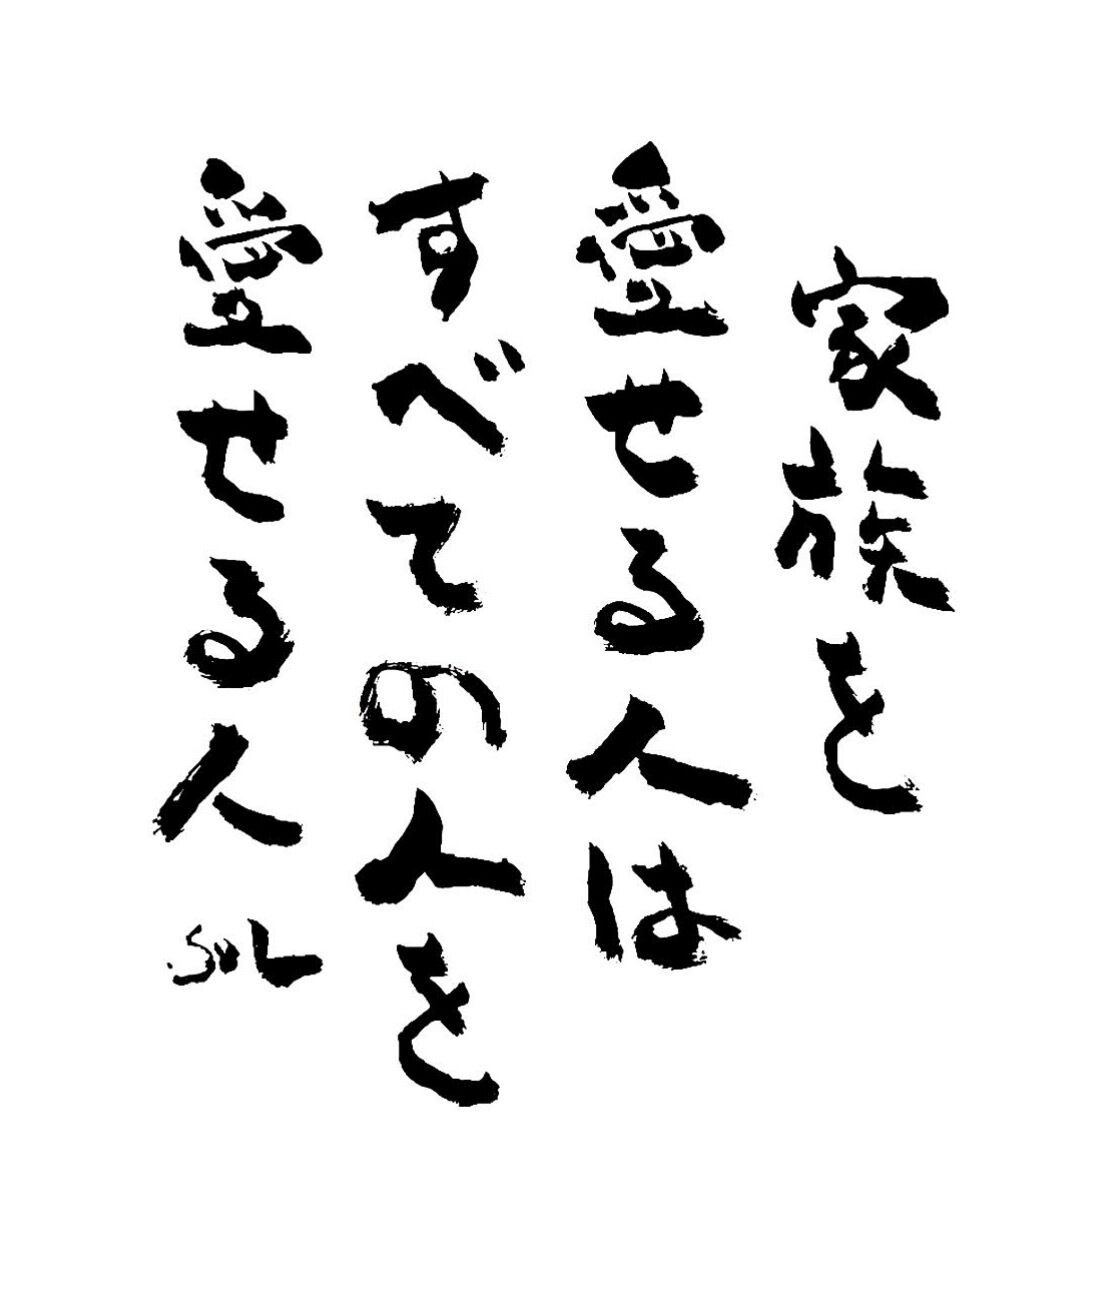 家族を
愛せる人は
すべての人を
愛せる人